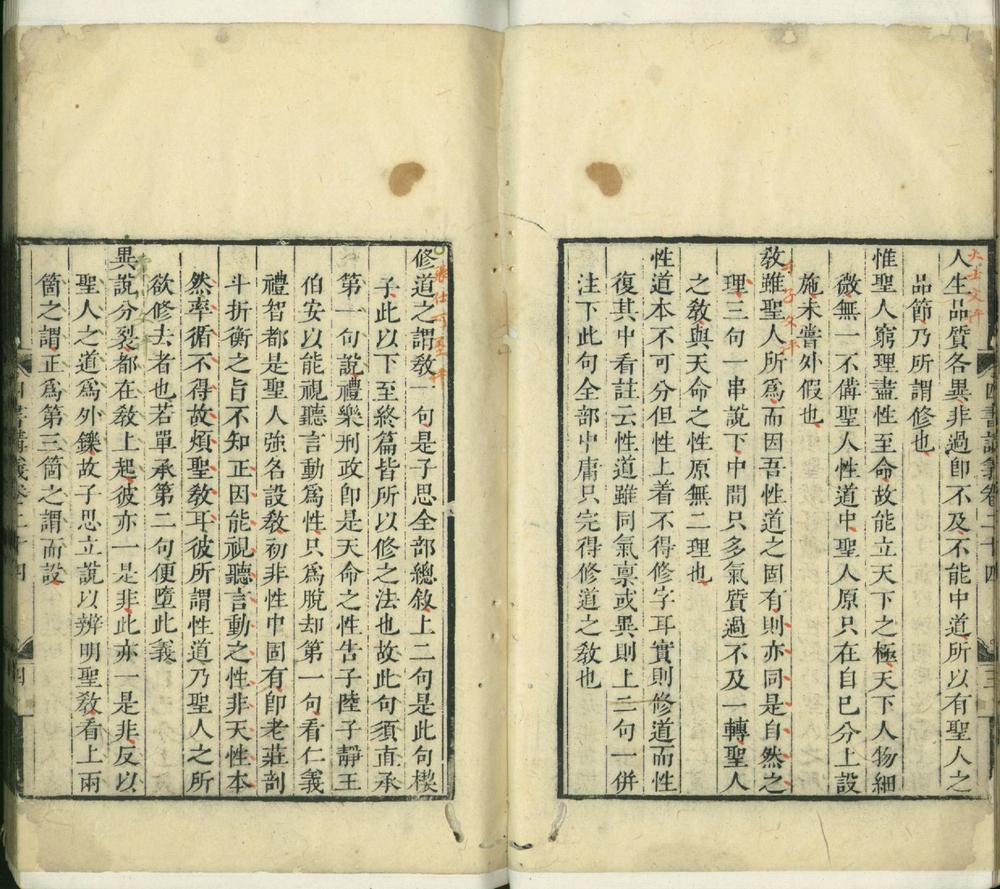 人生品質各異非過卽不及不能中道所以有聖人之
品節乃所謂修也
惟聖人窮理盡性至命故能立天下之極天下人物細
微無一不備聖人性道中聖人原只在自己分上設
施未嘗外假也
敎雖聖人所爲而因吾性道之固有則亦同是自然之
理三句一串說下中間只多氣質過不及一轉聖人
之敎與天命之性原無二理也
性道本不可分但性上着不得修字耳實則修道而性
復其中看註云性道雖同氣禀或異則上二句一併
注下此句全部中庸只完得修道之敎也
修道之謂敎一句是子思全部總敘上二句是此句楔
子此以下至終篇皆所以修之法也故此句須直承
第一句說禮樂刑政卽是天命之性告子陸子靜王
伯安以能視聽言動爲性只爲脫却第一句看仁義
禮智都是聖人強名設敎初非性中固有卽老莊剖
斗折衡之旨不知正因能視聽言動之性非天性本
然率循不得故煩聖敎耳彼所謂性道乃聖人之所
欲修去者也若單承第二句便墮此義
異說分裂都在敎上起彼亦一是非此亦一是非反以
聖人之道爲外鑠故子思立說以辨明聖敎看上兩
箇之謂正爲第三箇之謂而設
四書講義卷二十四
四